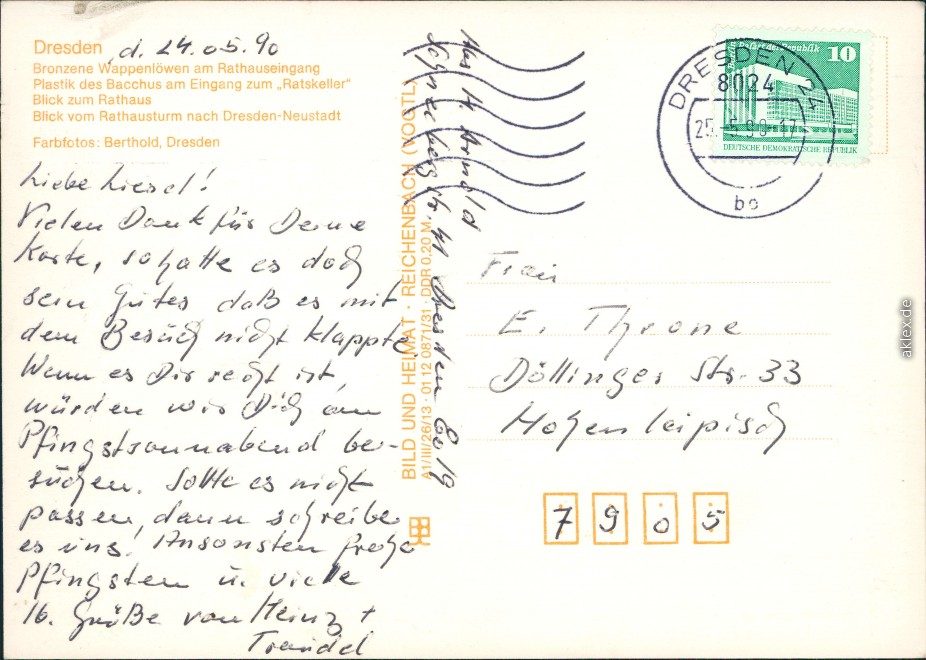 Dresden, d. 24.05.90
Bronzene Wappenlöwen am Rathauseingang
Plastik des Bacchus am Eingang zum „Ratskeller"
Blick zum Rathaus
Blick vom Rathausturm nach Dresden-Neustadt
Farbfotos: Berthold, Dresden
Liebe Liesel!
Vielen Dank für Deine
Karte, so hatte es doch
sein Gutes daß es mit
dem Besuch nicht klappte.
Wenn es Dir recht ist,
würden wir Dich am
Pfingstsonnabend be-
suchen. Sollte es nicht
passen, dann schreibe
es uns! Ansonsten frohe
Pfingsten u. viele
lb. Grüße von Heinz +
Traudel
BILD UND HEIMAT · REICHENBACH (VOGTL)
A1/III/26/13 · 01 12 0871/31 · DDR 0,20 M
H. Arnold
str. 41 Dresden 8019
DRESDEN 24
8024
25.-5.90-17
bo
Palast der Republik
10
DEUTSCHE DEMOKRATISCHE REPUBLIK
Frau
E. Throne
Döllinger Str. 33
Hohenleipisch
7905
aklex.de